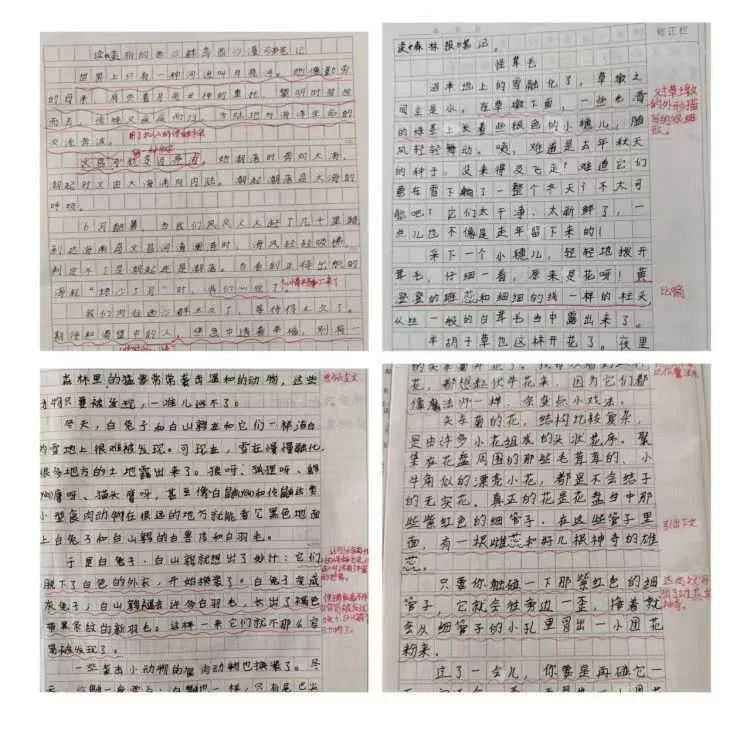 读《美丽的西沙群岛西沙漫步》笔记
世界上只有一种河流叫月亮河。她像勤劳
的母亲，肩负着月亮女神的重托，黎明时匆匆
而去，傍晚又依依而归，为陆地与海洋生命的
交流奔波。
她潮落时奔向大海，
潮起时又由大海涌向内陆。潮起潮落是大海的
呼吸。
6月酷暑，当我们风风火火赶了几十里路，
到达海南岛文昌河清澜港时，海风轻轻吹拂，
判定不了是潮起还是潮落。当看到正待出航的
海轮“琼沙3号”时，我们心
我们向往西沙群太久了，等待得太久了。
期待和渴望中的人，焦急中透着幸福，别有一
修正栏
读《森林报》笔记。
怪草毛
沼泽地上的雪融化了，草墩之
间全是水。在草墩下面，一些光滑
的绿茎上长着些银色的小穗儿，随
风轻轻舞动。咦，难道是去年秋天
的种子，没来得及飞走？难道它们
要在雪下躺了一整个冬天？不太可
能吧？它们太干净、太新鲜了，一
点儿也不像是去年留下来的！
采下一个小穗儿，轻轻地拨开
茸毛，仔细一看，原来是花呀！黄
澄澄的雄蕊和细细的线一样的柱头
从丝一般的白茸毛当中露出来了。
羊胡子草也这样开花了。夜里
对草墩
的外形描
写的很细
致。
比喻
森林里的猛兽常常袭击温和的动物，这些
动物只要被发现，一准儿逃不了。
冬天，白兔子和白山鹑在和它们一样洁白
的雪地上很难被发现。可现在，雪在慢慢融化，
很多地方的土地露出来了。狼呀、狐狸呀、鹞
鹰呀、猫头鹰呀，甚至像白鼬和伶鼬这类
小型食肉动物在很远的地方就能看它黑色地面
上白兔子和白山鹑的白兽皮和白羽毛。
于是白兔子、白山鹑就想出了妙计：它们
脱下了白色的外衣，开始换装了。白兔子变成
灰兔子，白山鹑褪去许多白羽毛，长出了褐色
带黑条纹的新羽毛。这样一来它们就不那么容
易被发现了。
一些袭击小动物的食肉动物也换装了。冬
一样，只有尾巴尖
花，都想起伏牛花来，因为它们都
像魔法师一样，会变点小戏法。
矢车菊的花，结构比较复杂，
是由许多小花组成的头状花序。聚
集在花盘周围的那些毛茸茸的、小
牛角似的漂亮小花，都是不会结子
的无实花。真正的花是花盘当中那
些紫红色的细管子，在这些管子里
面，有一根雌蕊和好几根神奇的雄
蕊。
只要你触碰一下那紫红色的细
管子，它就会往旁边一歪，接着就
会从细管子的小孔里冒出一小团花
粉来。
过了一会儿，你要是再碰它一
引出下文